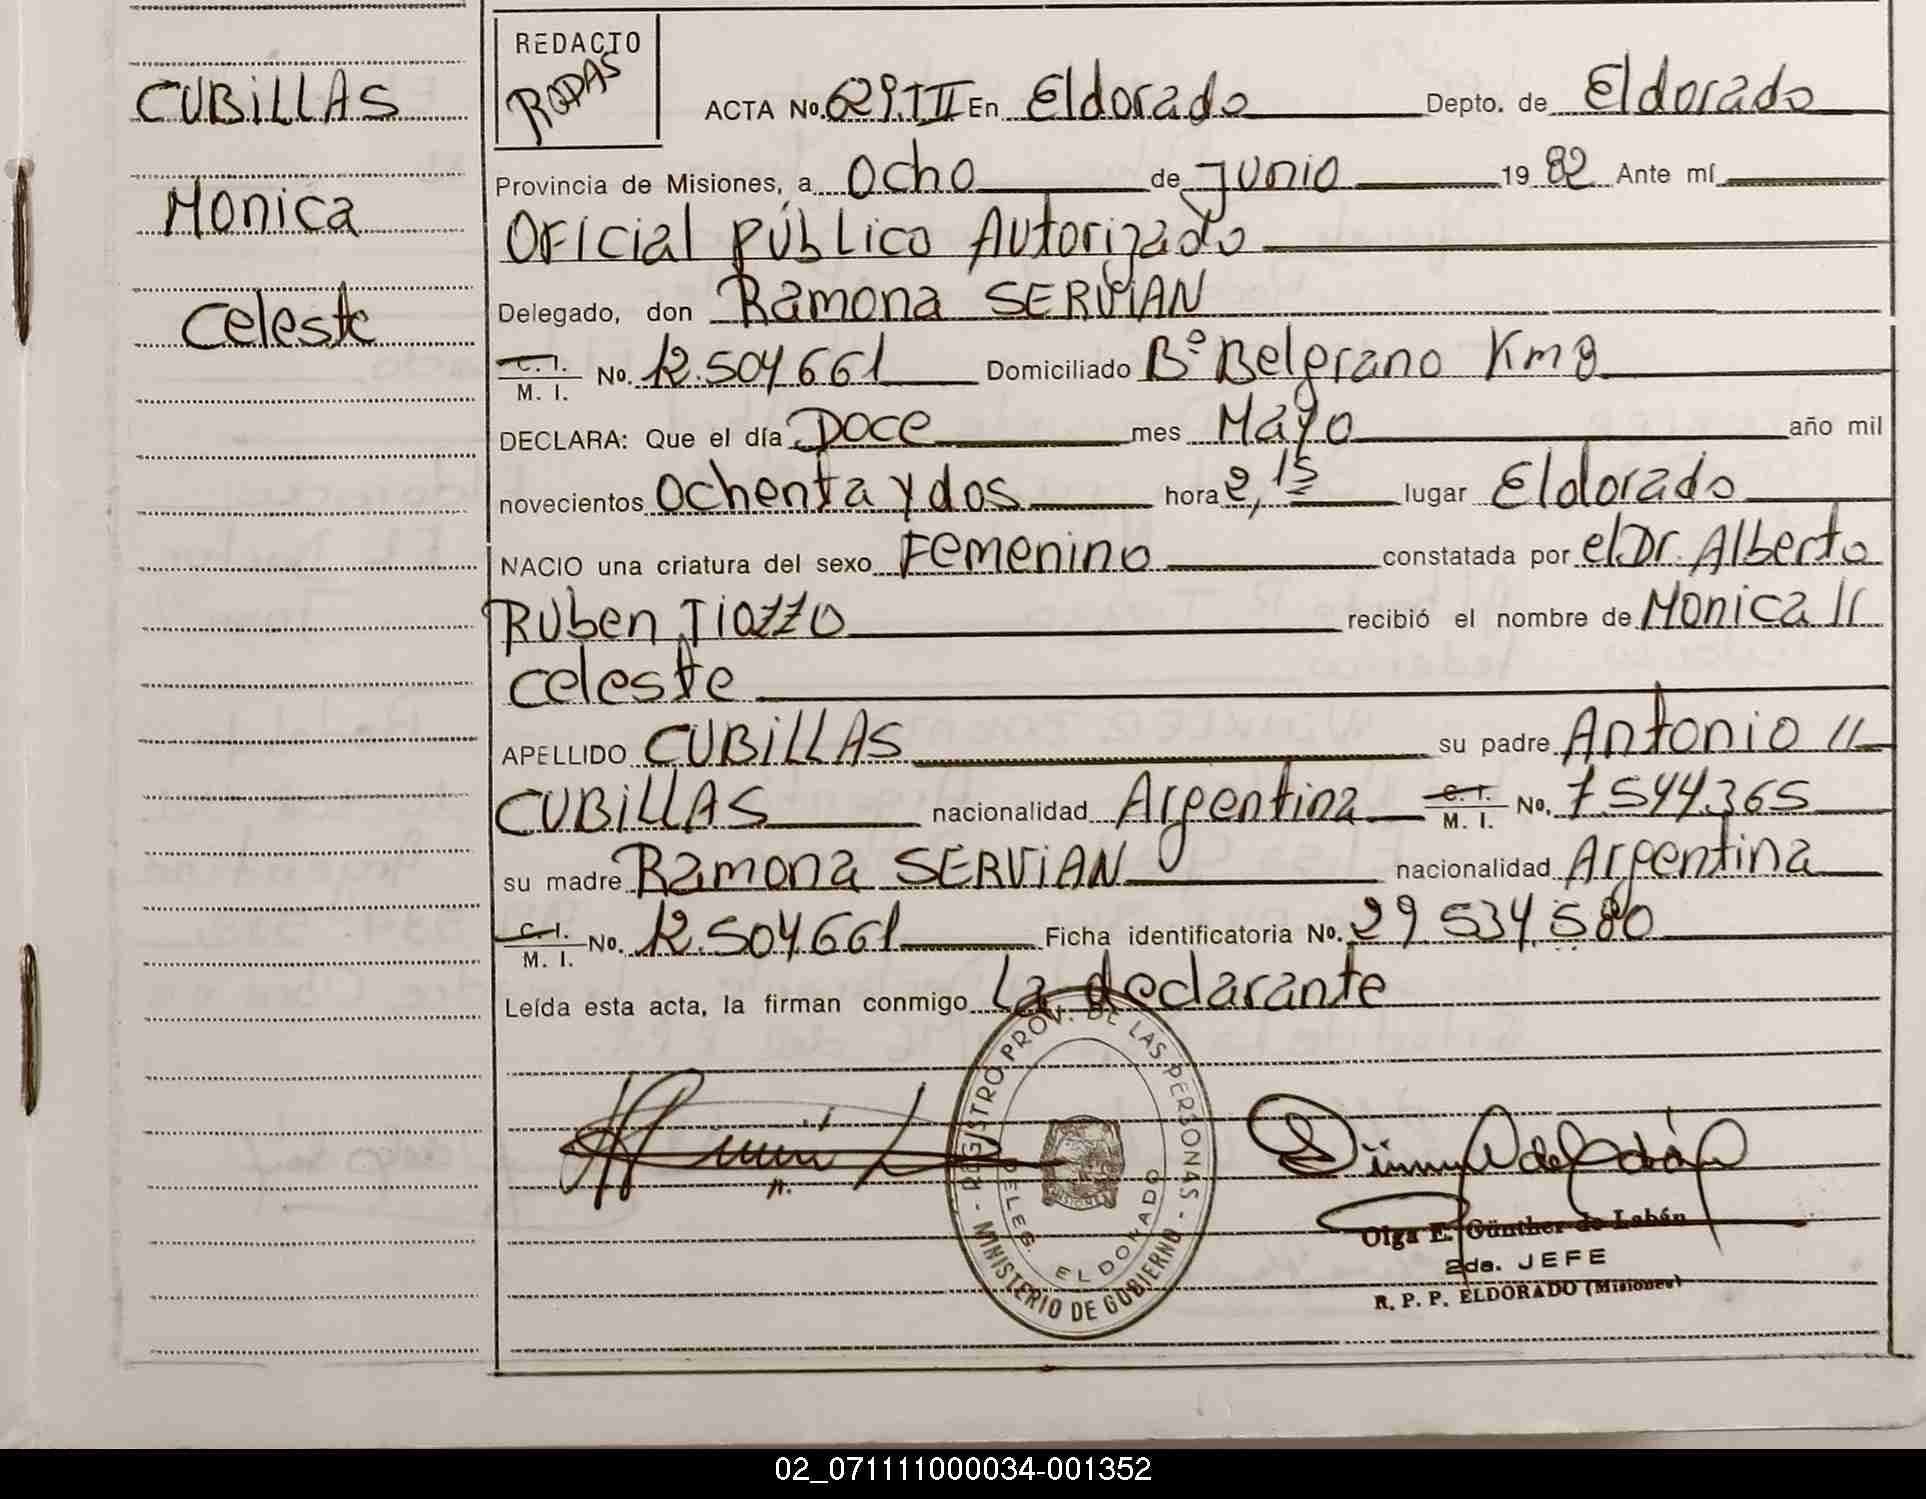 CUBILLAS
Monica
Celeste
REDACTO
RODAS
ACTA No. 629.TII En Eldorado Depto. de Eldorado
Provincia de Misiones, a Ocho de Junio 19 82 Ante mí
Oficial Público Autorizado
Delegado, don Ramona SERVIAN
C. I. / M. I. No. 12.504.661 Domiciliado Bº Belgrano Km 9
DECLARA: Que el día Doce mes Mayo año mil
novecientos Ochenta y dos hora 2,15 lugar Eldorado
NACIO una criatura del sexo Femenino constatada por el Dr. Alberto
Ruben Tiozzo recibió el nombre de Monica //
Celeste
APELLIDO CUBILLAS su padre Antonio //
CUBILLAS nacionalidad Argentina C. I. / M. I. No. 7.544.365
su madre Ramona SERVIAN nacionalidad Argentina
C. I. / M. I. No. 12.504.661 Ficha identificatoria No. 29.534.580
Leída esta acta, la firman conmigo La declarante
- REGISTRO PROV. DE LAS PERSONAS -
MINISTERIO DE GOBIERNO
DELEG. ELDORADO
MISIONES
Olga E. Günther de Labán
2da. JEFE
R. P. P. ELDORADO (Misiones)
02_071111000034-001352